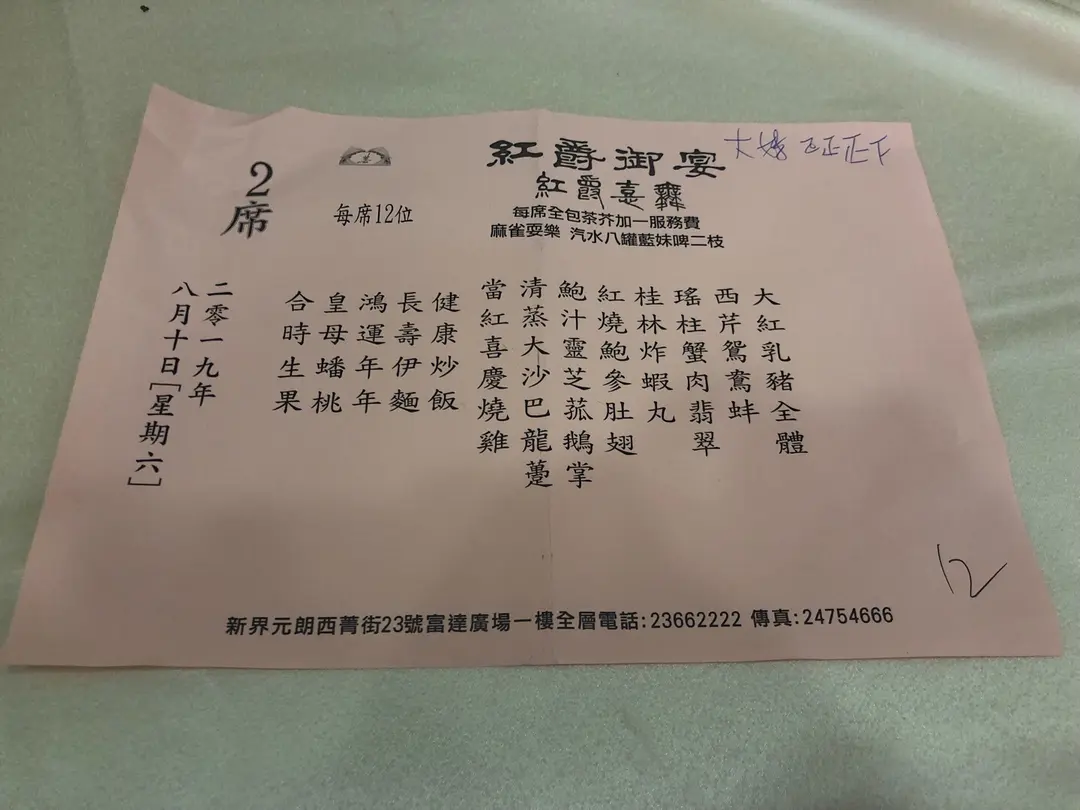 紅爵御宴
紅爵喜轟
每席全包茶芥加一服務費
麻雀耍樂 汽水八罐藍妹啤二枝
2席
每席12位
大紅乳豬全體
西芹鴛鴦蚌
瑤柱蟹肉翡翠
桂林炸蝦丸
紅燒鮑參肚翅
鮑汁靈芝菰鵝掌
清蒸大沙巴龍躉
當紅喜慶燒雞
健康炒飯
長壽伊麵
鴻運年年
皇母蟠桃
合時生果
二零一九年
八月十日[星期六]
12
新界元朗西菁街23號富達廣場一樓全層電話:23662222 傳真:24754666